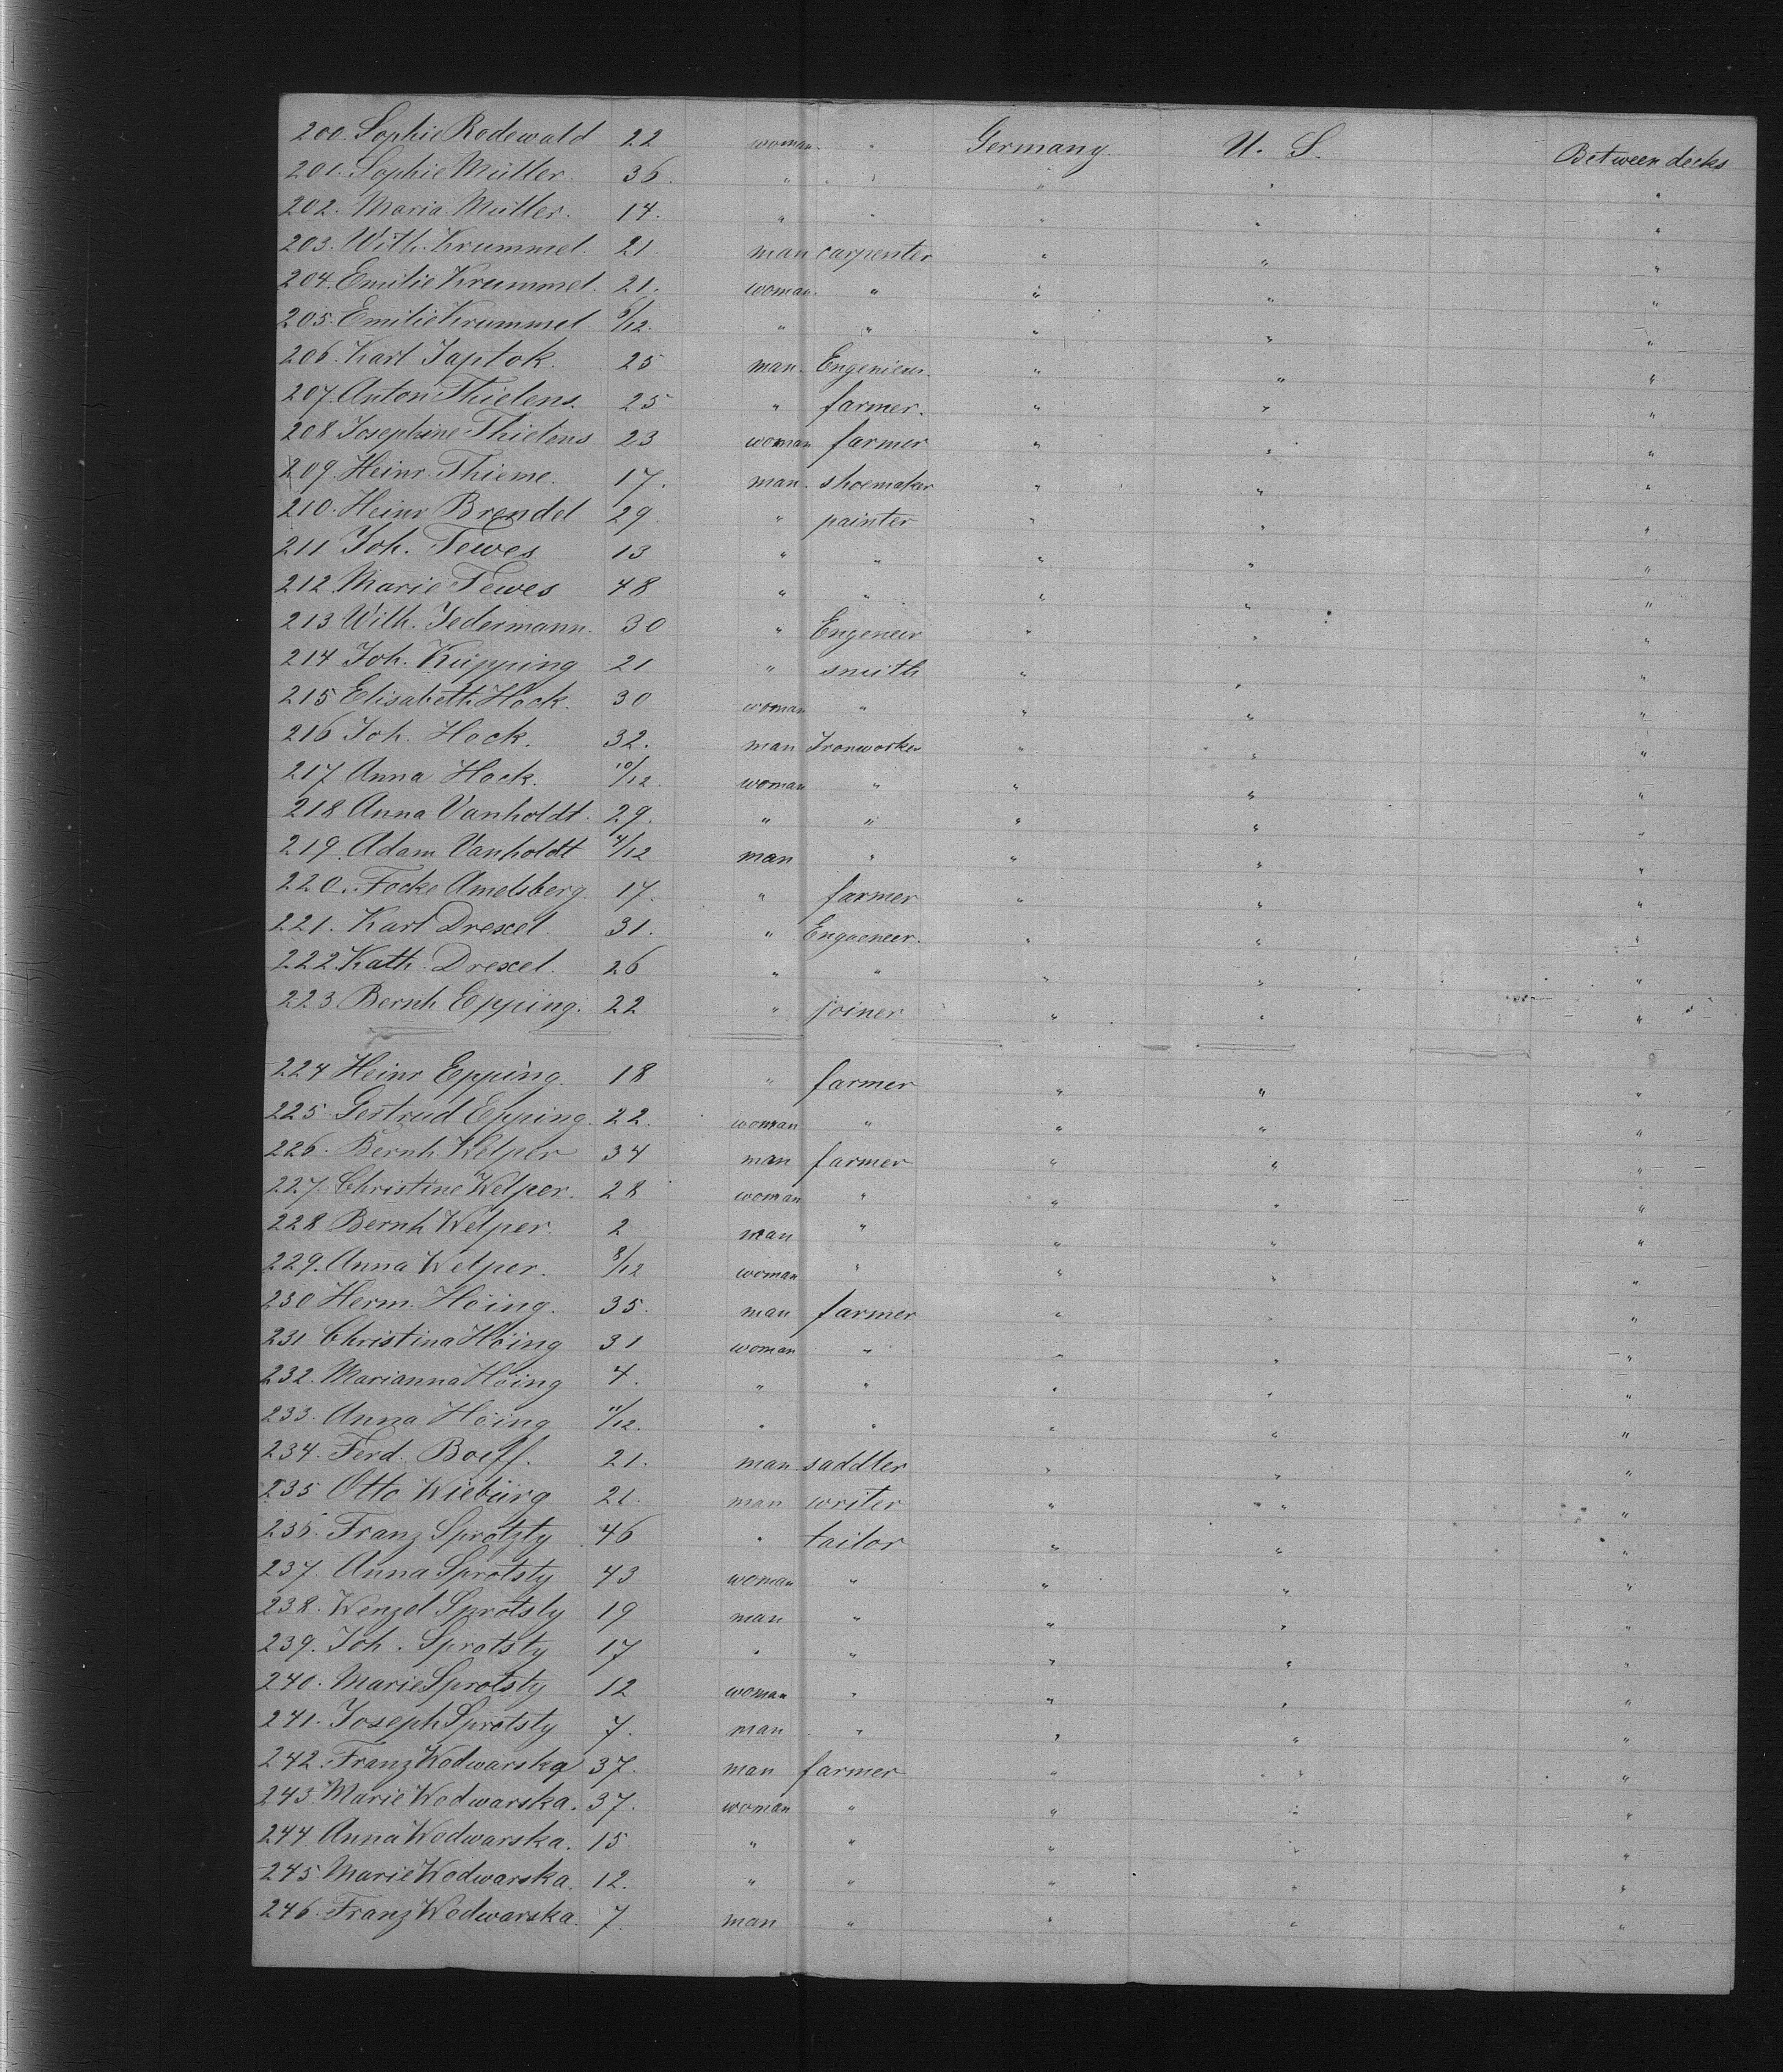 200. Sophie Rodewald 22 woman. " Germany. U. S. Between decks
201. Sophie Müller. 36. " " " " "
202. Maria Müller. 14. " " " " "
203. Wilh. Krummel. 21. man carpenter " " "
204. Emilie Krummel. 21. woman. " " " "
205. Emilie Krummel. 6/12. " " " " "
206. Karl Japtok. 25 man. Engenieur. " " "
207. Anton Thielens. 25 " farmer. " " "
208 Josephine Thielens 23 woman farmer " " "
209. Heinr. Thieme. 17. man. shoemaker " " "
210. Heinr Brendel 29. " painter " " "
211 Joh. Tewes 13 " " " " "
212 Marie Tewes 48 " " " " "
213 Wilh. Jedermann. 30 " Engeneer " " "
214 Joh. Küpping 21 " smith " " "
215 Elisabeth Hock. 30 woman " " " "
216 Joh. Hock. 32. man Ironworker " " "
217 Anna Hock. 10/12. woman " " " "
218 Anna Vanholdt. 29. " " " " "
219. Adam Vanholdt 4/12 man " " " "
220. Focke Amelsberg. 17. " farmer " " "
221. Karl Drexel. 31. " Engueneer. " " "
222 Kath. Drexel. 26 " " " " "
223 Bernh Epping. 22 " joiner " " "
224 Heinr Epping. 18 " farmer " " "
225 Gertrud Epping. 22. woman " " " "
226. Bernh. Welper 34 man farmer " " "
227. Christine Welper. 28 woman " " " "
228 Bernh Welper. 2 man " " " "
229. Anna Welper. 8/12 woman " " " "
230 Herm. Höing. 35. man farmer " " "
231 Christina Höing 31 woman " " " "
232. Marianna Höing 4. " " " " "
233. Anna Höing 11/12. " " " " "
234. Ferd. Boeff. 21. man saddler " " "
235 Otto Wiebürg 21. man writer " " "
236. Franz Sprotzty 46 " tailor " " "
237. Anna Sprotsty 43 woman " " " "
238. Wenzel Sprotsty 19 man " " " "
239. Joh. Sprotsty 17 " " " " "
240. Marie Sprotsty 12 woman " " " "
241. Joseph Sprotsty 7. man " " " "
242. Franz Wodwarska 37. man farmer " " "
243. Marie Wodwarska. 37. woman " " " "
244 Anna Wodwarska. 15 " " " " "
245 Marie Wodwarska. 12. " " " " "
246. Franz Wodwarska. 7. man " " " "